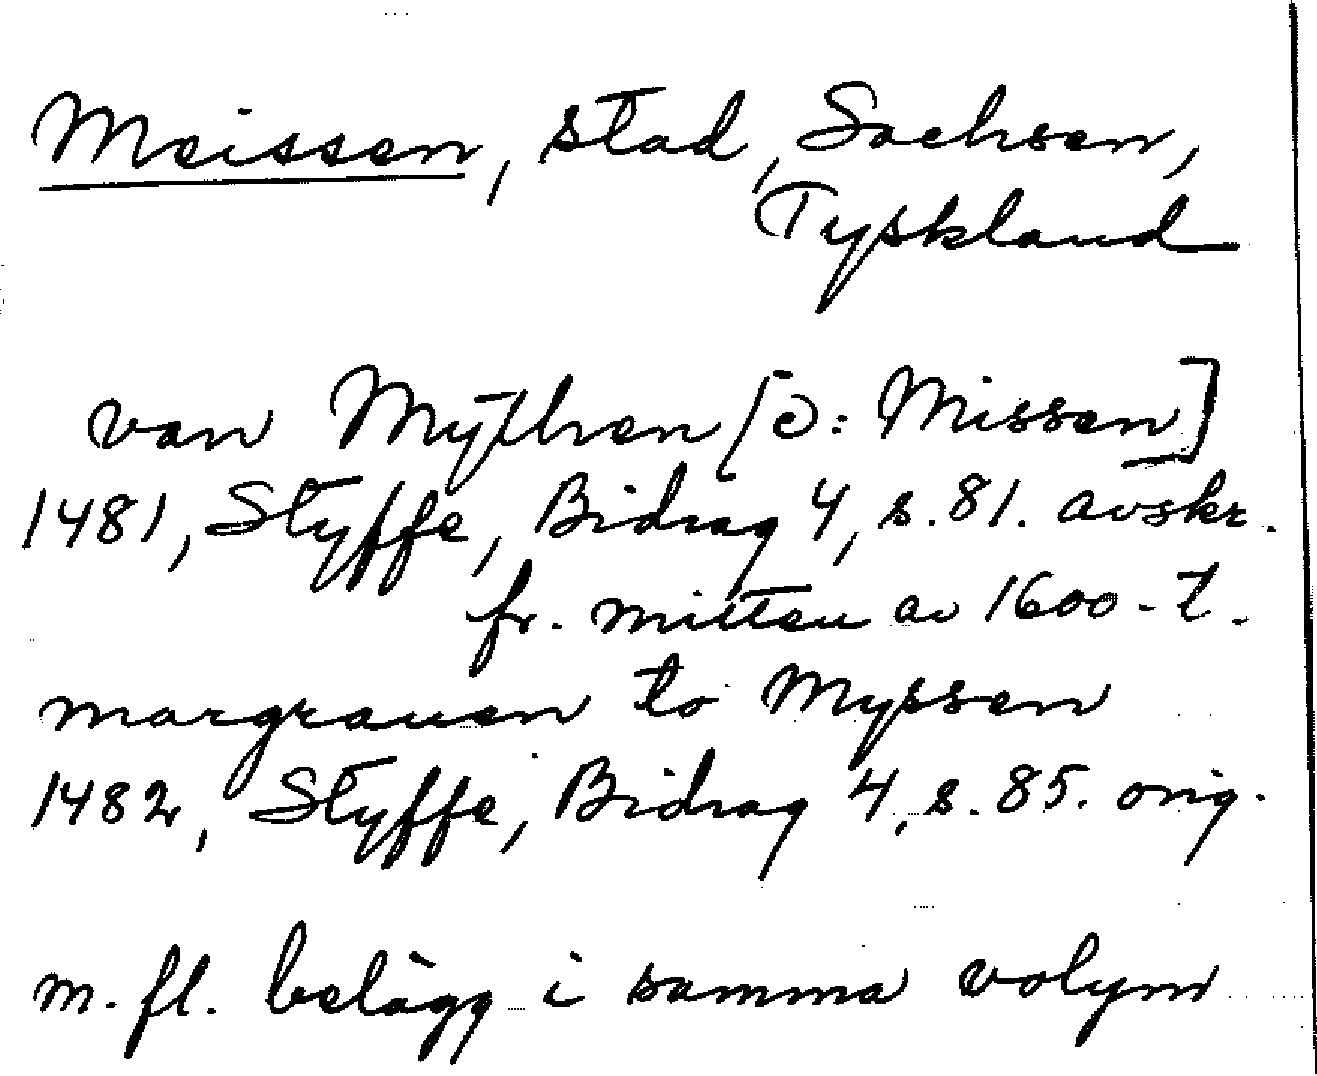 Meissen, stad, Sachsen,
Tyskland
van Mÿthen [ɔ: Missen]
1481, Styffe, Bidrag 4, s. 81. avskr.
fr. mitten av 1600-t.
margrauen to Myssen
1482, Styffe, Bidrag 4, s. 85. orig.
m. fl. belägg i samma volym